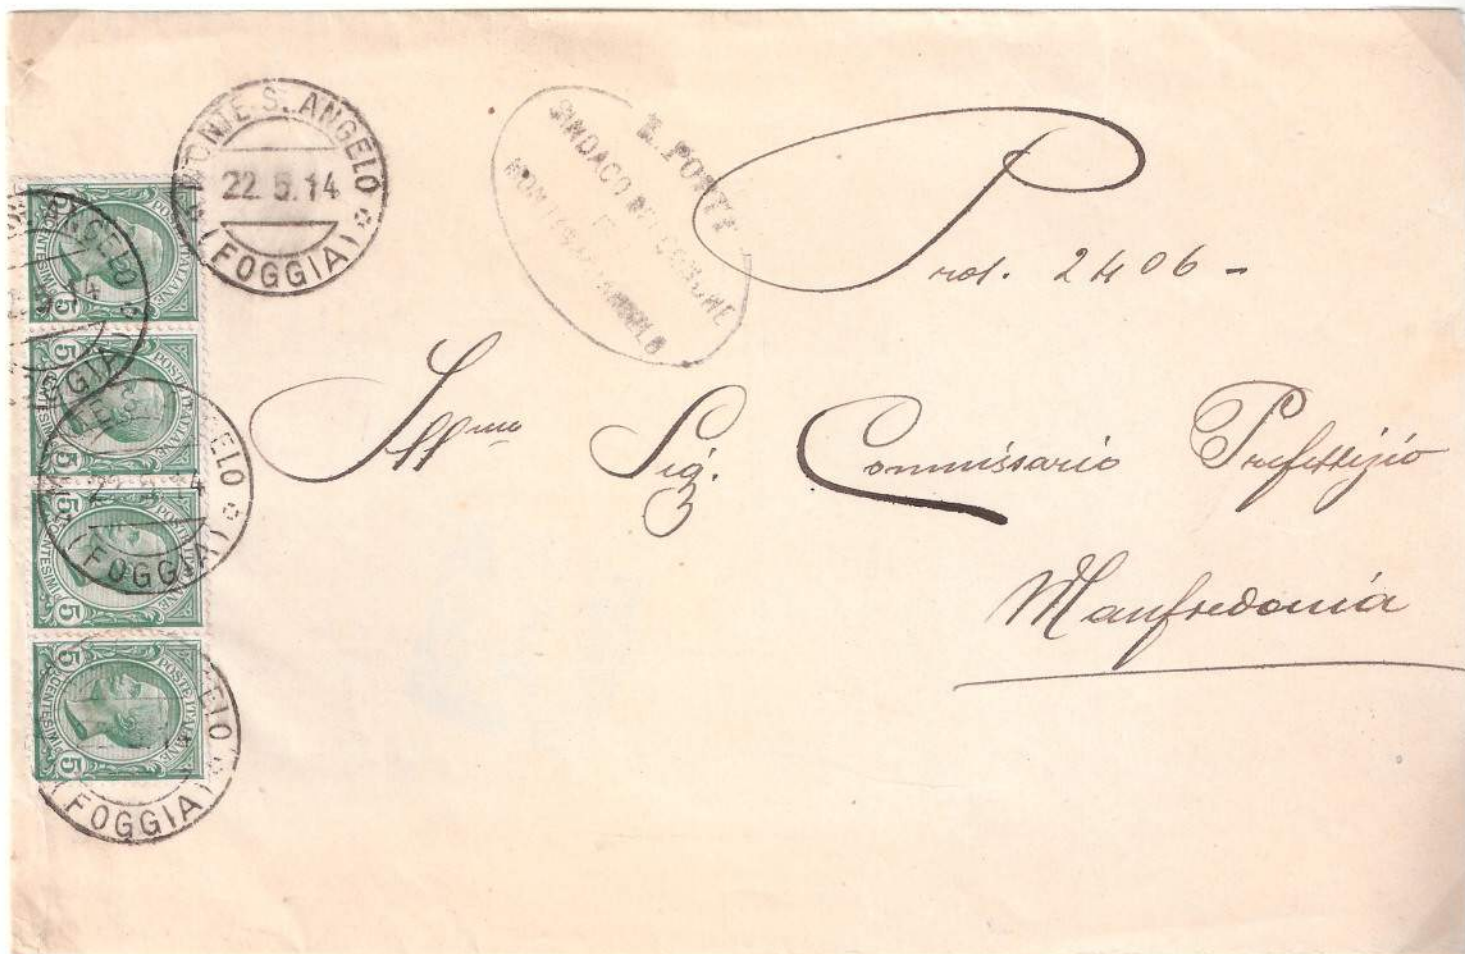 MONTE S. ANGELO
22.5.14
(FOGGIA)
R. POSTE
SINDACO DEL COMUNE
MONTE SANT'ANGELO
Prot. 2406 -
Ill.mo Sig. Commissario Prefettizio
Manfredonia
ANGELO
14
POSTE ITALIANE
CENTESIMI
5
5
POSTE ITALIANE
CENTESIMI
5
ANGELO
14
(FOGGIA)
5
POSTE ITALIANE
CENTESIMI
5
5
POSTE ITALIANE
CENTESIMI
5
GELO
(FOGGIA)